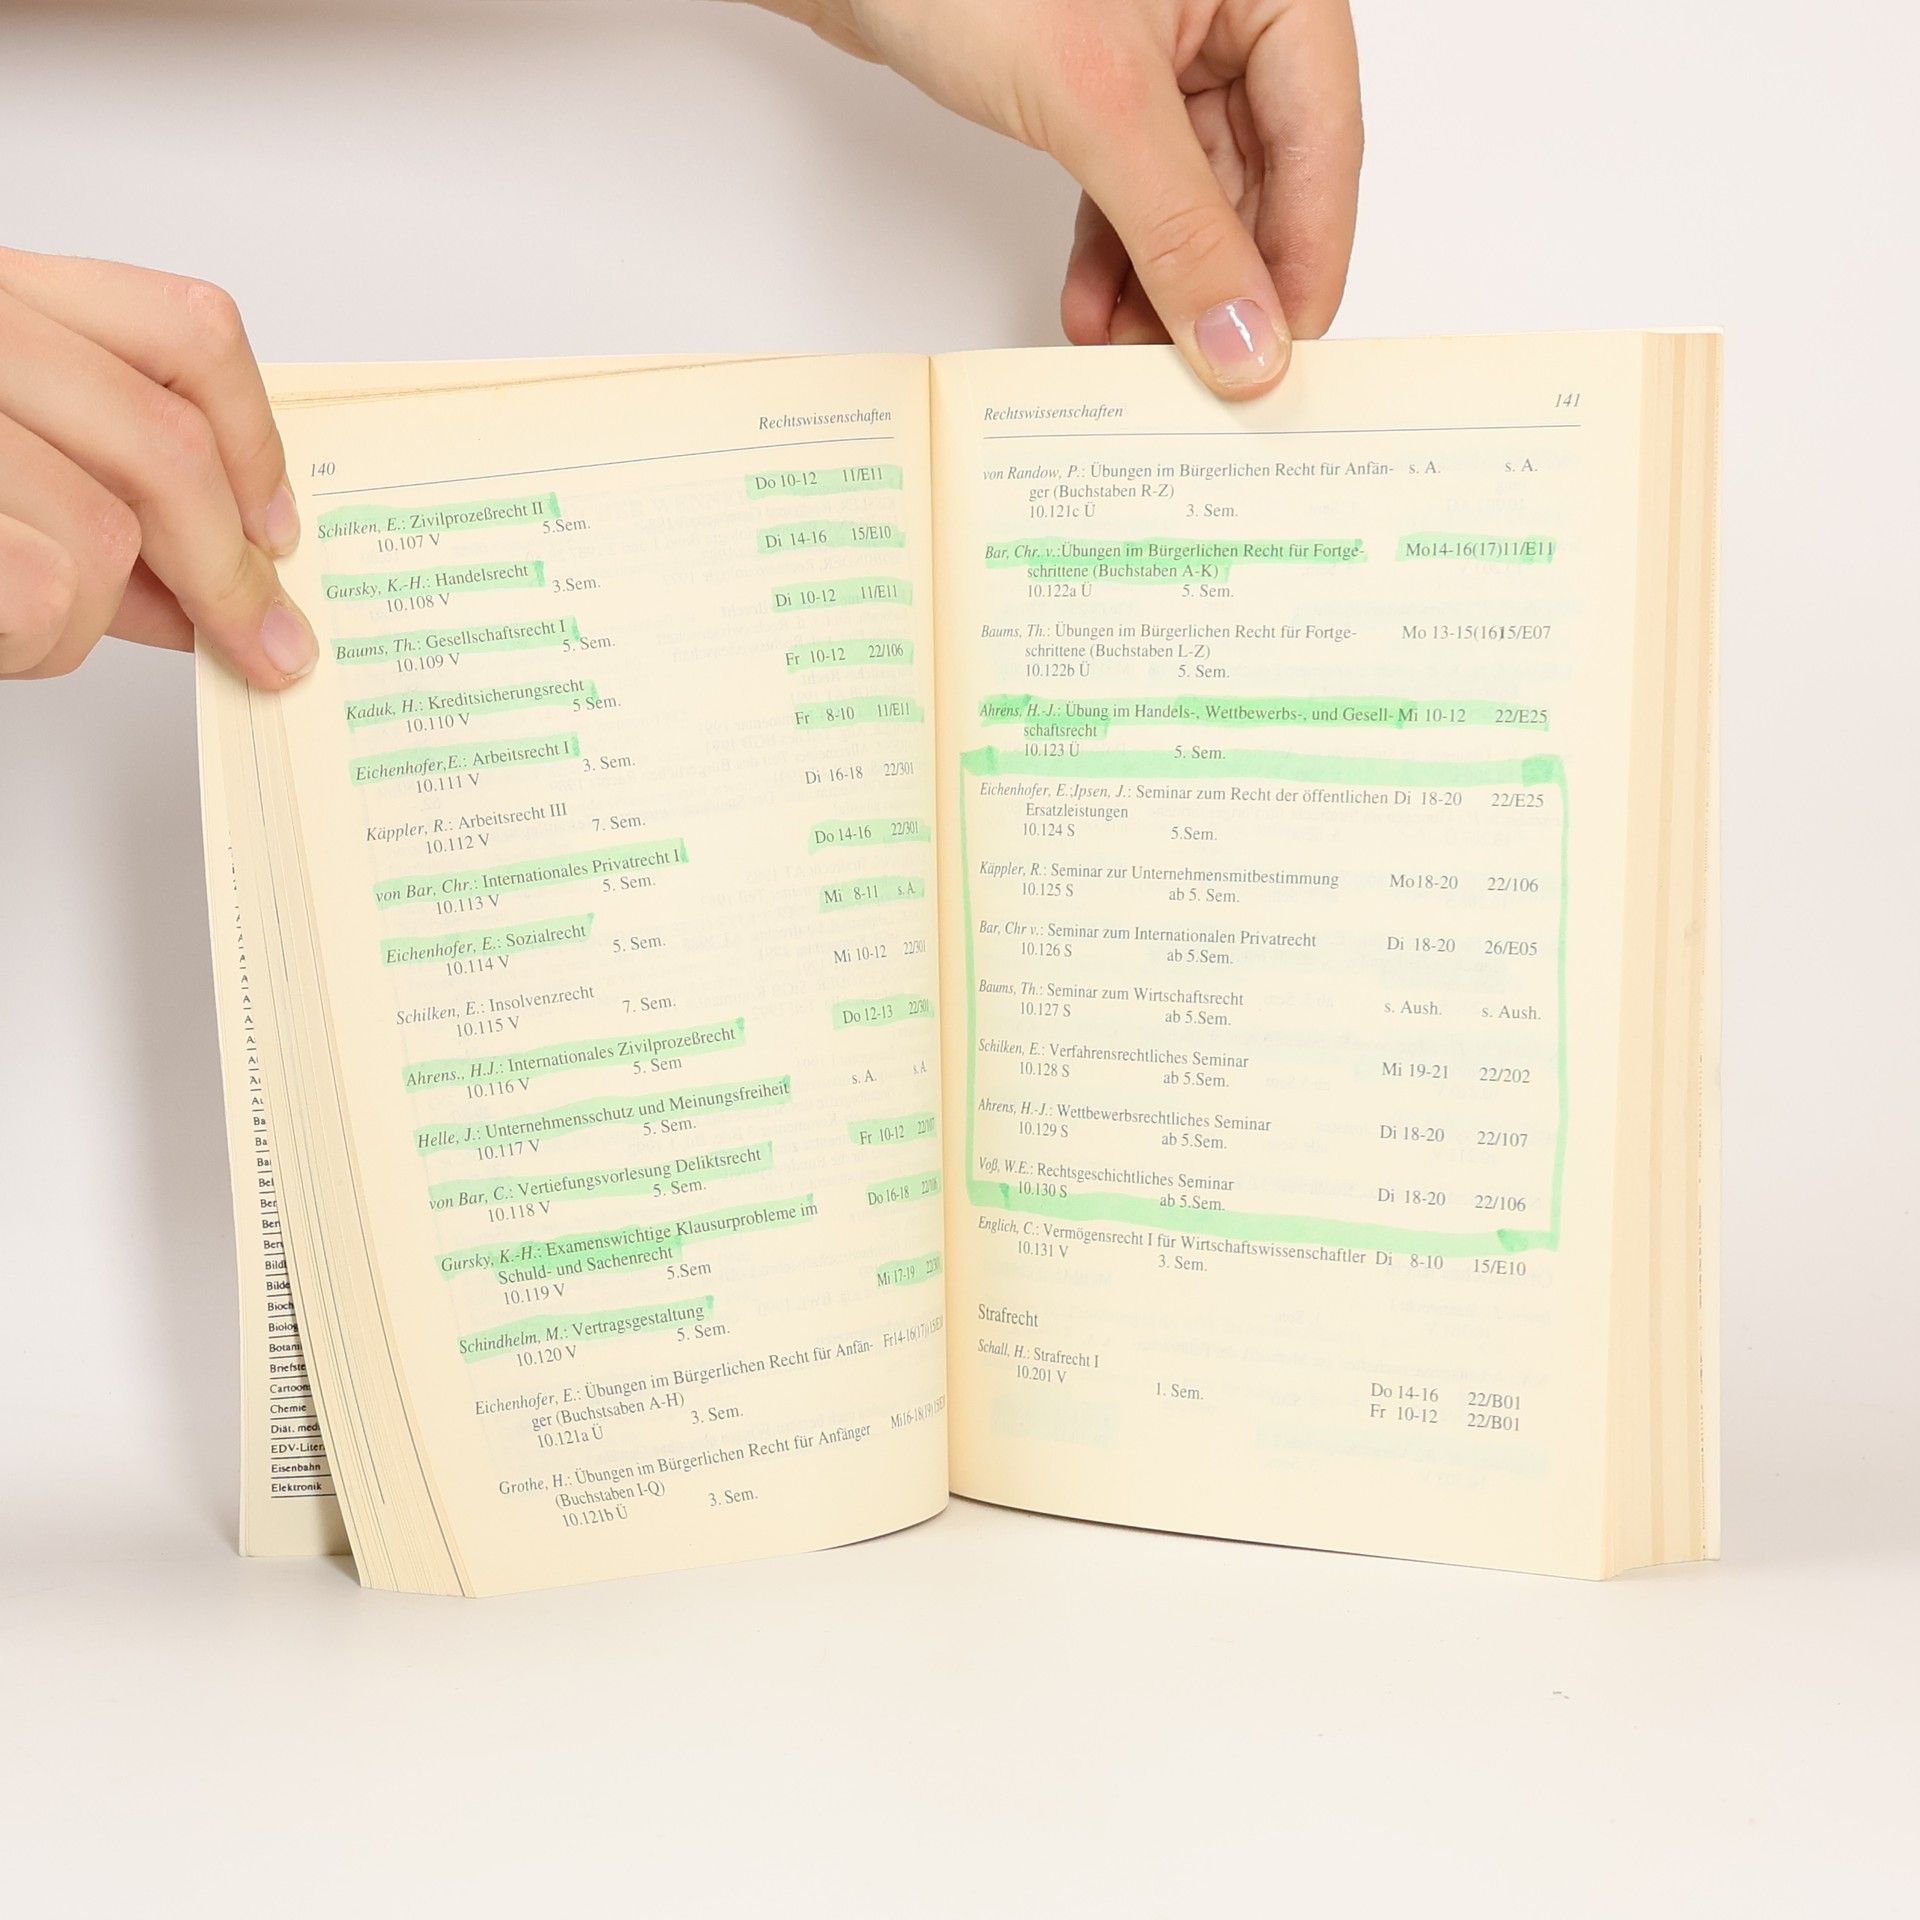 140 Rechtswissenschaften
Schilken, E.: Zivilprozeßrecht II Do 10-12 11/E11
10.107 V 5.Sem.
Gursky, K.-H.: Handelsrecht Di 14-16 15/E10
10.108 V 3.Sem.
Baums, Th.: Gesellschaftsrecht I Di 10-12 11/E11
10.109 V 5. Sem.
Kaduk, H.: Kreditsicherungsrecht Fr 10-12 22/106
10.110 V 5 Sem.
Eichenhofer,E.: Arbeitsrecht I Fr 8-10 11/E11
10.111 V 3. Sem.
Käppler, R.: Arbeitsrecht III Di 16-18 22/301
10.112 V 7. Sem.
von Bar, Chr.: Internationales Privatrecht I Do 14-16 22/301
10.113 V 5. Sem.
Eichenhofer, E.: Sozialrecht Mi 8-11 s. A.
10.114 V 5. Sem.
Schilken, E.: Insolvenzrecht Mi 10-12 22/301
10.115 V 7. Sem.
Ahrens., H.J.: Internationales Zivilprozeßrecht Do 12-13 22/301
10.116 V 5. Sem
Helle, J.: Unternehmensschutz und Meinungsfreiheit s. A. s.A.
10.117 V 5. Sem.
von Bar, C.: Vertiefungsvorlesung Deliktsrecht Fr 10-12 22/107
10.118 V 5. Sem.
Gursky, K.-H.: Examenswichtige Klausurprobleme im Do 16-18 22/106
Schuld- und Sachenrecht
10.119 V 5.Sem
Schindhelm, M.: Vertragsgestaltung Mi 17-19
10.120 V 5. Sem.
Eichenhofer, E.: Übungen im Bürgerlichen Recht für Anfän- Fr14-16(17)
ger (Buchstsaben A-H)
10.121a Ü 3. Sem.
Grothe, H.: Übungen im Bürgerlichen Recht für Anfänger Mi16-18(19)
(Buchstaben I-Q)
10.121b Ü 3. Sem.
Rechtswissenschaften 141
von Randow, P.: Übungen im Bürgerlichen Recht für Anfän- s. A. s. A.
ger (Buchstaben R-Z)
10.121c Ü 3. Sem.
Bar, Chr. v.:Übungen im Bürgerlichen Recht für Fortge- Mo14-16(17)11/E11
schrittene (Buchstaben A-K)
10.122a Ü 5. Sem.
Baums, Th.: Übungen im Bürgerlichen Recht für Fortge- Mo 13-15(16)15/E07
schrittene (Buchstaben L-Z)
10.122b Ü 5. Sem.
Ahrens, H.-J.: Übung im Handels-, Wettbewerbs-, und Gesell- Mi 10-12 22/E25
schaftsrecht
10.123 Ü 5. Sem.
Eichenhofer, E.;Ipsen, J.: Seminar zum Recht der öffentlichen Di 18-20 22/E25
Ersatzleistungen
10.124 S 5.Sem.
Käppler, R.: Seminar zur Unternehmensmitbestimmung Mo18-20 22/106
10.125 S ab 5. Sem.
Bar, Chr v.: Seminar zum Internationalen Privatrecht Di 18-20 26/E05
10.126 S ab 5.Sem.
Baums, Th.: Seminar zum Wirtschaftsrecht s. Aush. s. Aush.
10.127 S ab 5.Sem.
Schilken, E.: Verfahrensrechtliches Seminar Mi 19-21 22/202
10.128 S ab 5.Sem.
Ahrens, H.-J.: Wettbewerbsrechtliches Seminar Di 18-20 22/107
10.129 S ab 5.Sem.
Voß, W.E.: Rechtsgeschichtliches Seminar Di 18-20 22/106
10.130 S ab 5.Sem.
Englich, C.: Vermögensrecht I für Wirtschaftswissenschaftler Di 8-10 15/E10
10.131 V 3. Sem.
Strafrecht
Schall, H.: Strafrecht I
10.201 V 1. Sem. Do 14-16 22/B01
Fr 10-12 22/B01
Chemie
Eisenbahn
Elektronik